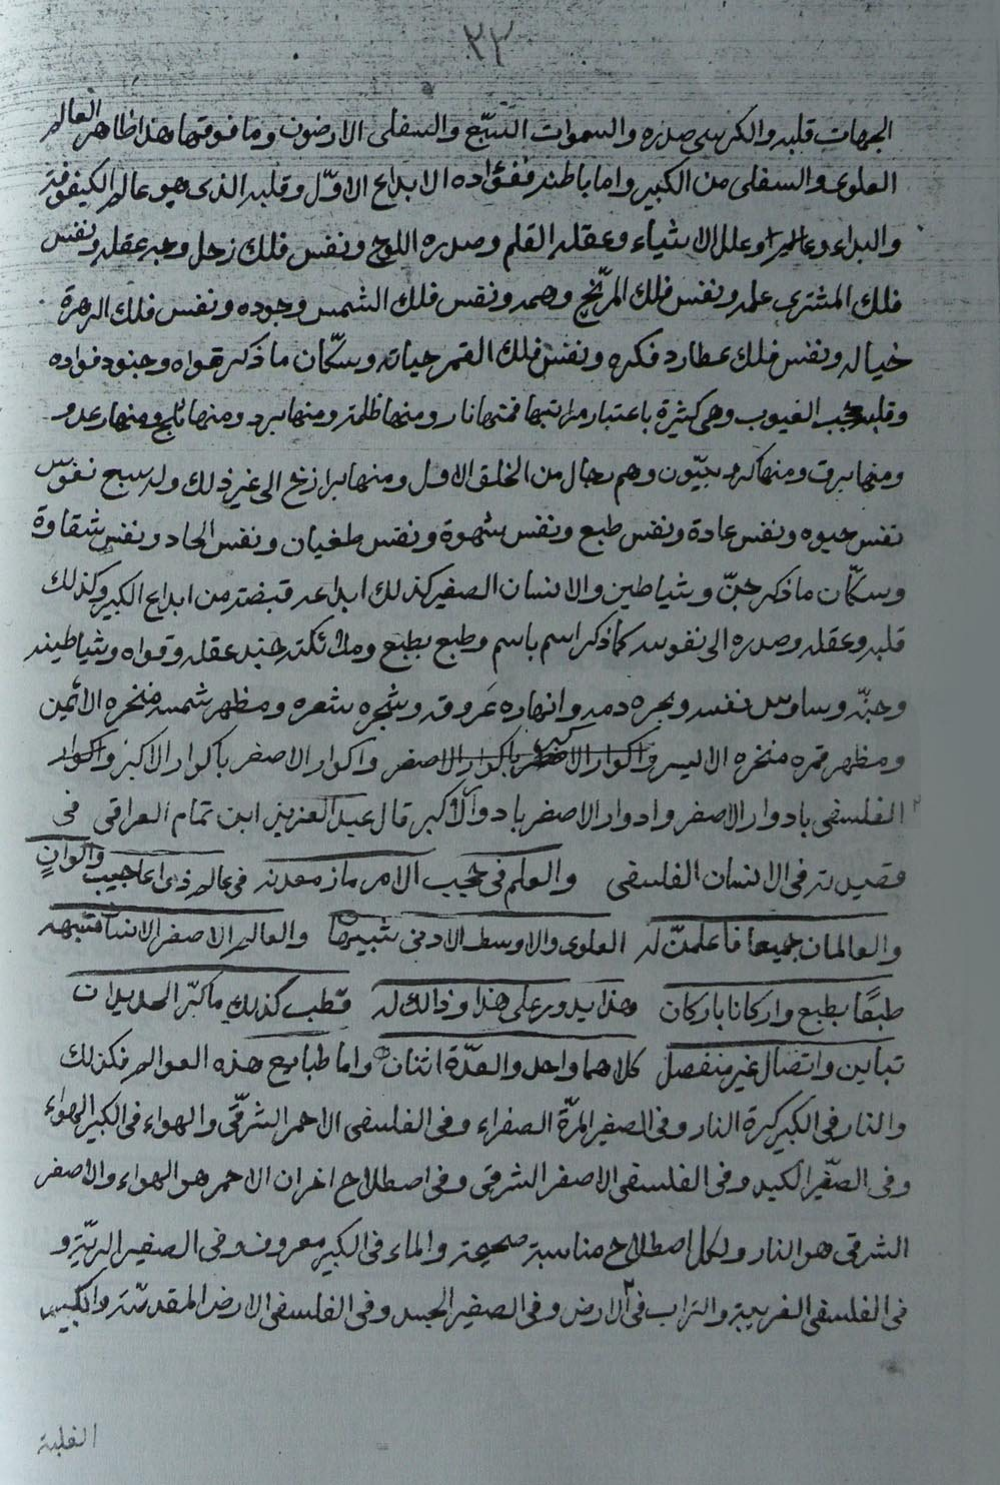 ٣٣
الجهات قلبه والكرسي صدره والسموات السبع والسفلى الارضون وما فوقها هذا ظاهر العالم
العلوي والسفلى من الكبير واما باطنه ففؤاده الابداع الاوّل وقلبه الذى هو عالم الكيفوفية
والبداء وعالم وعلل الاشياء وعقله القلم وصدره اللوح ونفس فلك زحل وجه عقله ونفس
فلك المشترى علمه ونفس فلك المرّيخ وهمه ونفس فلك الشمس وجوده ونفس فلك الزهرة
خياله ونفس فلك عطارد فكره ونفس فلك القمر حياته وسكّان ما ذكر قواه وجنود فواده
وقلبه حجب الغيوب وهى كثيرة باعتبار مراتبها فمنها نار ومنها ظلمة ومنها برد ومنها ثلج ومنها رعد و
ومنها برق ومنها كروبيّون وهم رجال من الخلق الاول ومنها برازخ الى غير ذلك وله سبع نفوس
نفس حيوه ونفس عادة ونفس طبع ونفس شهوة ونفس طغيان ونفس الحاد ونفس شقاوة
وسكّان ما ذكر جنّ وشياطين والانسان الصغير كذلك ابداعه قبضة من ابداع الكبير وكذلك
قلبه وعقله وصدره الى نفوسه كما ذكر اسم باسم وطبع بطبع وملائكته جند عقله وقواه وشياطينه
وجنّه وساوس نفسه وبحره دمه وانهاره عروقه وشجره شعره ومظهر شمسه منخره الائمن
ومظهر قمره منخره الايسر واكوار الاصغر باكوار الاصغر واكوار الاصغر باكوار الاكبر واكوار
الفلسفى بادوار الاصغر وادوار الاصغر بادوار الاكبر قال عبد العزيز ابن تمام العراقى فى
قصيدته فى الانسان الفلسفى والعلم فى عجيب الامر ماز معدنه فى عالم ذى اعاجيب والوانٍ
والعالمان جميعا فاعلمنّ له العلوى والاوسط الادنى شبيهان والعالم الاصغر الانسا فتبهه
طبعًا بطبع واركانا باركان هذا يدور على هذا وذالك له قطب كذلك ماكرّ الجديدان
تباين واتصال غير منفصل كلاهما واحد والعدّة اثنان واما طبايع هذه العوالم فكذلك
والنار فى الكبير كرة النار وفى الصغير المرّة الصفراء وفى الفلسفى الاحمر الشرقّى والهواء فى الكبير الهواء
وفى الصّغير الكبد وفى الفلسفى الاصفر الشرقى وفى اصطلاح اخر ان الاحمر هو الهواء والاصفر
الشرقى هو النار ولكل اصطلاح مناسبة صحيحة والماء فى الكبير معروف وفى الصغير الريّة و
فى الفلسفى الغربية والتراب فى الارض وفى الصغير الجسد وفى الفلسفى الارض المقدسّة والكبيس
الغلبة